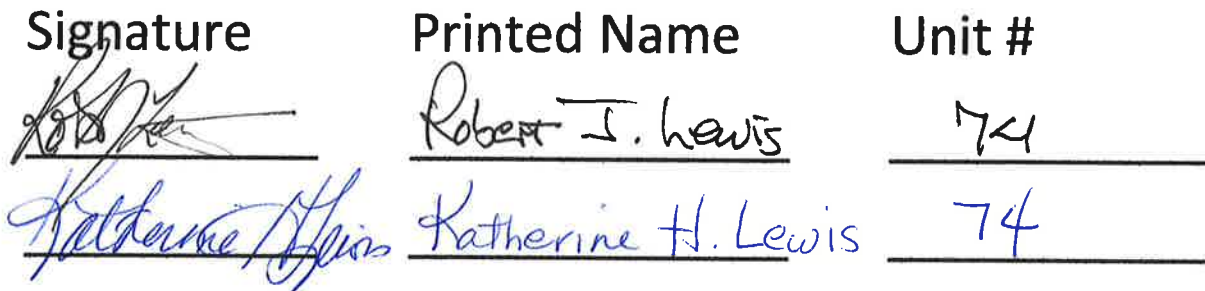 Signature Printed Name Unit #
Robert J. Lewis 74
Katherine H. Lewis Katherine H. Lewis 74